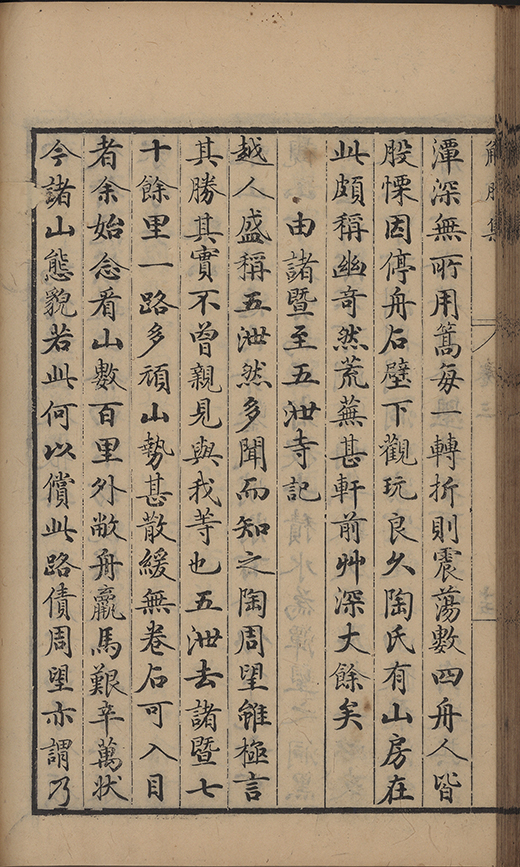 解脫集
卷三
潭深無所用篙每一轉折則震蕩數四舟人皆
股慄因停舟石壁下觀玩良久陶氏有山房在
此頗稱幽奇然荒蕪甚軒前艸深丈餘矣
由諸暨至五泄寺記
越人盛稱五泄然多聞而知之陶周望雖極言
其勝其實不曾親見與我等也五泄去諸暨七
十餘里一路多頑山勢甚散緩無卷石可入目
者余始念看山數百里外敝舟羸馬艱辛萬狀
今諸山態貌若此何以償此路債周望亦謂乃